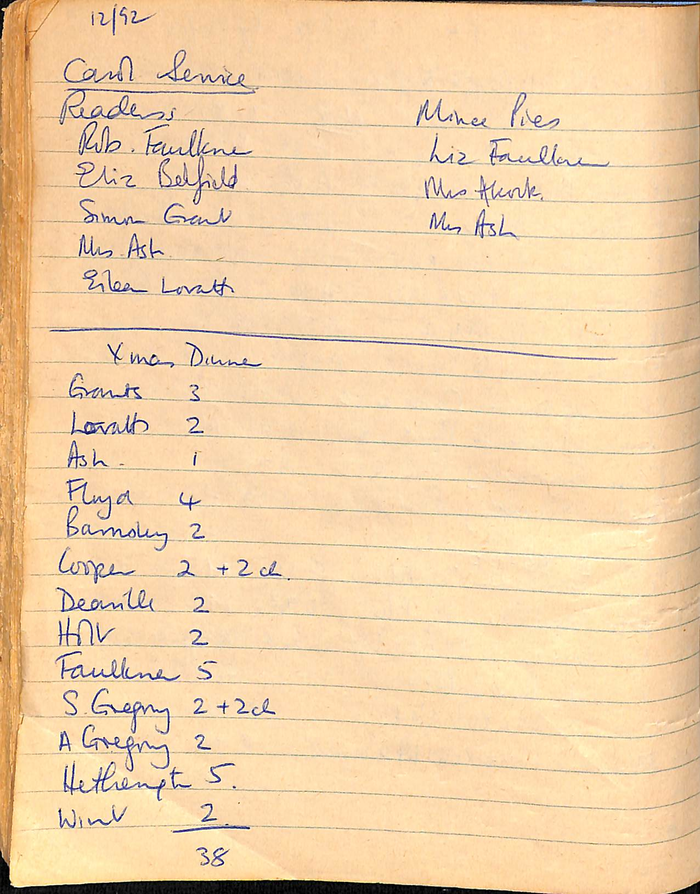 12/92
Carol Service
Readers:
Rob. Faulkner
Eliz Belfield
Simon Grant
Mrs Ash
Eileen Lovatt
Mince Pies
Liz Faulkner
Mrs Alcock.
Mrs Ash
Xmas Dinner
Grants 3
Lovatts 2
Ash. 1
Floyd 4
Barnsley 2
Cooper 2 + 2 ch.
Deaville 2
2
Faulkner 5
S. Gregory 2 + 2 ch
A Gregory 2
5.
2
38